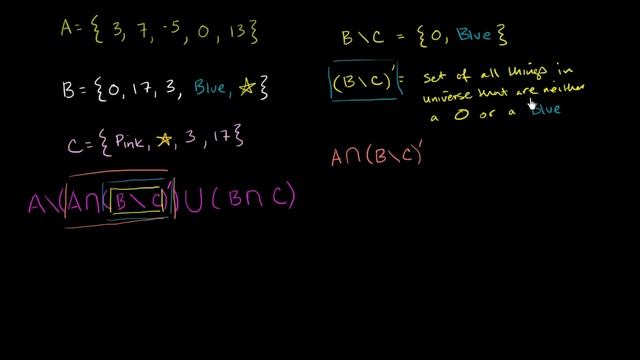 A = { 3, 7, -5, 0, 13 }
B = {0, 17, 3, Blue, ☆}
C = {Pink, ☆, 3, 17}
A\(A∩(B\C)')∪(B∩C)
B\C = {0, Blue}
(B\C)' = set of all things in
universe that are neither
a 0 or a Blue
A∩(B\C)'